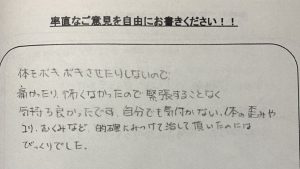 率直なご意見を自由にお書きください！！
体をボキボキさせたりしないので、
痛かったり、怖くなかったので緊張することなく
気持ち良かったです。自分でも気付かない、体の歪みや
コリ、むくみなど、的確にみつけて治して頂いたのには
びっくりでした。